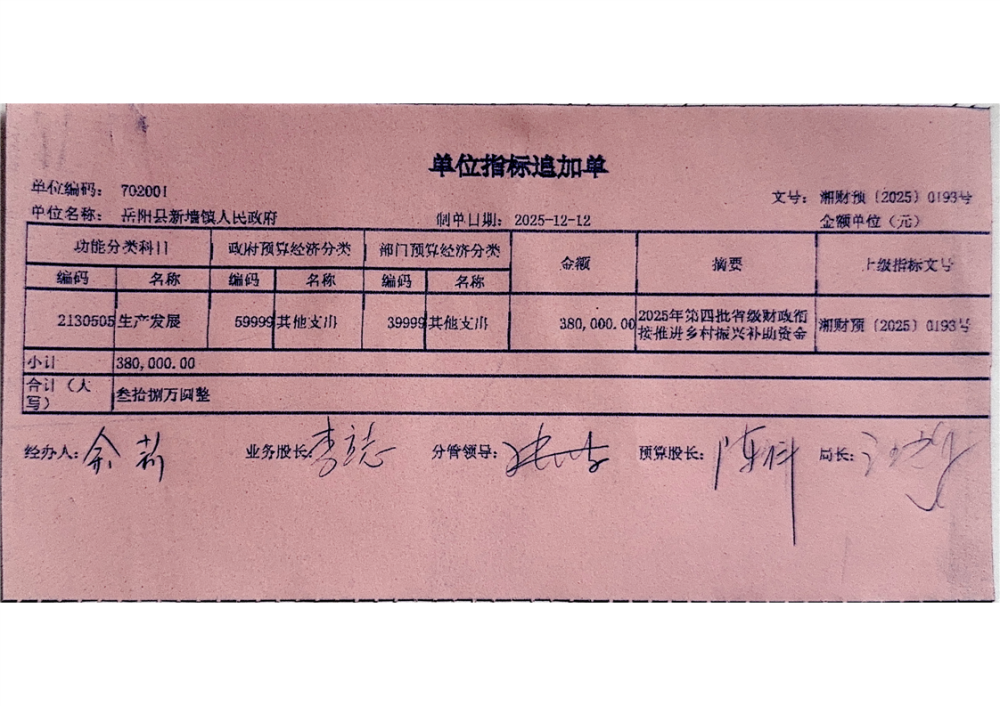 单位指标追加单
单位编码： 702001
文号： 湘财预〔2025〕0193号
单位名称： 岳阳县新墙镇人民政府 制单日期： 2025-12-12 金额单位（元）
功能分类科目 政府预算经济分类 部门预算经济分类 金额 摘要 上级指标文号
编码 名称 编码 名称 编码 名称
2130505 生产发展 59999 其他支出 39999 其他支出 380,000.00 2025年第四批省级财政衔接推进乡村振兴补助资金 湘财预〔2025〕0193号
小计 380,000.00
合计（大写） 叁拾捌万圆整
经办人： 余莉 业务股长： 李志 分管领导： 预算股长： 局长：